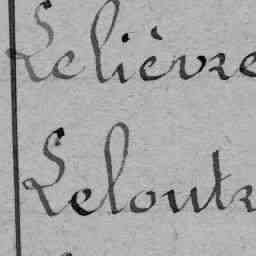 Lelièvre
Leloutr